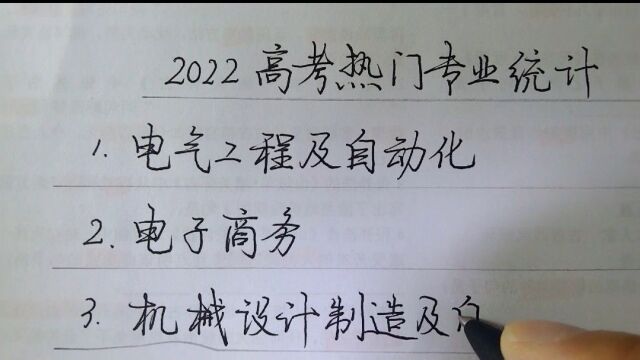 2022高考热门专业统计
1. 电气工程及自动化
2. 电子商务
3. 机械设计制造及自